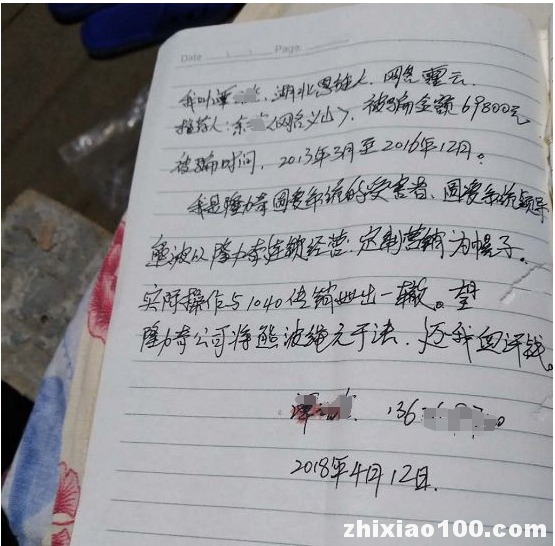 Date Page
我叫覃 湖北恩施人，网名
推荐人：东 (网名义山)，被骗金额69800元
被骗时间，2013年3月至2016年12月。
我是隆力奇固爱系统的受害者，固爱系统领导
熊波以隆力奇连锁经营、定制营销为幌子，
实际操作与1040传销如出一辙。望
隆力奇公司将熊波绳之于法，还我血汗钱。
覃 136
2018年4月12日.
zhixiao100.com